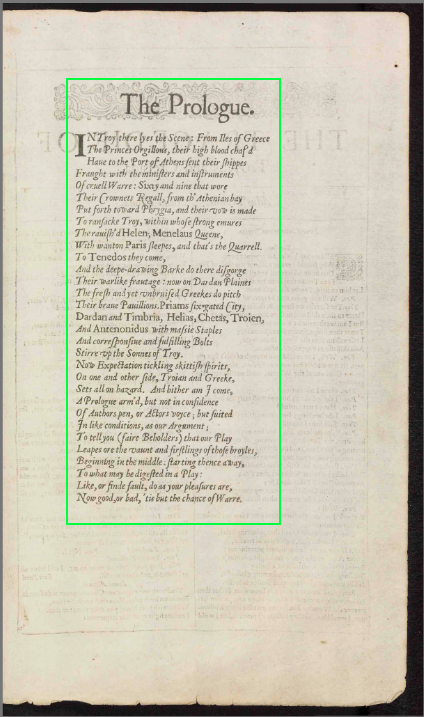 The Prologue.
IN Troy there lyes the Scene: From Iles of Greece
The Princes Orgillous, their high blood chaf'd
Haue to the Port of Athens sent their shippes
Fraught with the ministers and instruments
Of cruell Warre: Sixty and nine that wore
Their Crownets Regall, from th'Athenian bay
Put forth toward Phrygia, and their vow is made
To ransacke Troy, within whose strong emures
The rauish'd Helen, Menelaus Queene,
With wanton Paris sleepes, and that's the Quarrell.
To Tenedos they come,
And the deepe-drawing Barke do there disgorge
Their warlike frautage: now on Dardan Plaines
The fresh and yet vnbruised Greekes do pitch
Their braue Pauillions. Priams six-gated City,
Dardan and Timbria, Helias, Chetas, Troien,
And Antenonidus with massie Staples
And corresponsiue and fulfilling Bolts
Stirre vp the Sonnes of Troy.
Now Expectation tickling skittish spirits,
On one and other side, Troian and Greeke,
Sets all on hazard. And hither am I come,
A Prologue arm'd, but not in confidence
Of Authors pen, or Actors voyce; but suited
In like conditions, as our Argument;
To tell you (faire Beholders) that our Play
Leapes ore the vaunt and firstlings of those broyles,
Beginning in the middle: starting thence away,
To what may be digested in a Play:
Like, or finde fault, do as your pleasures are,
Now good, or bad, 'tis but the chance of Warre.